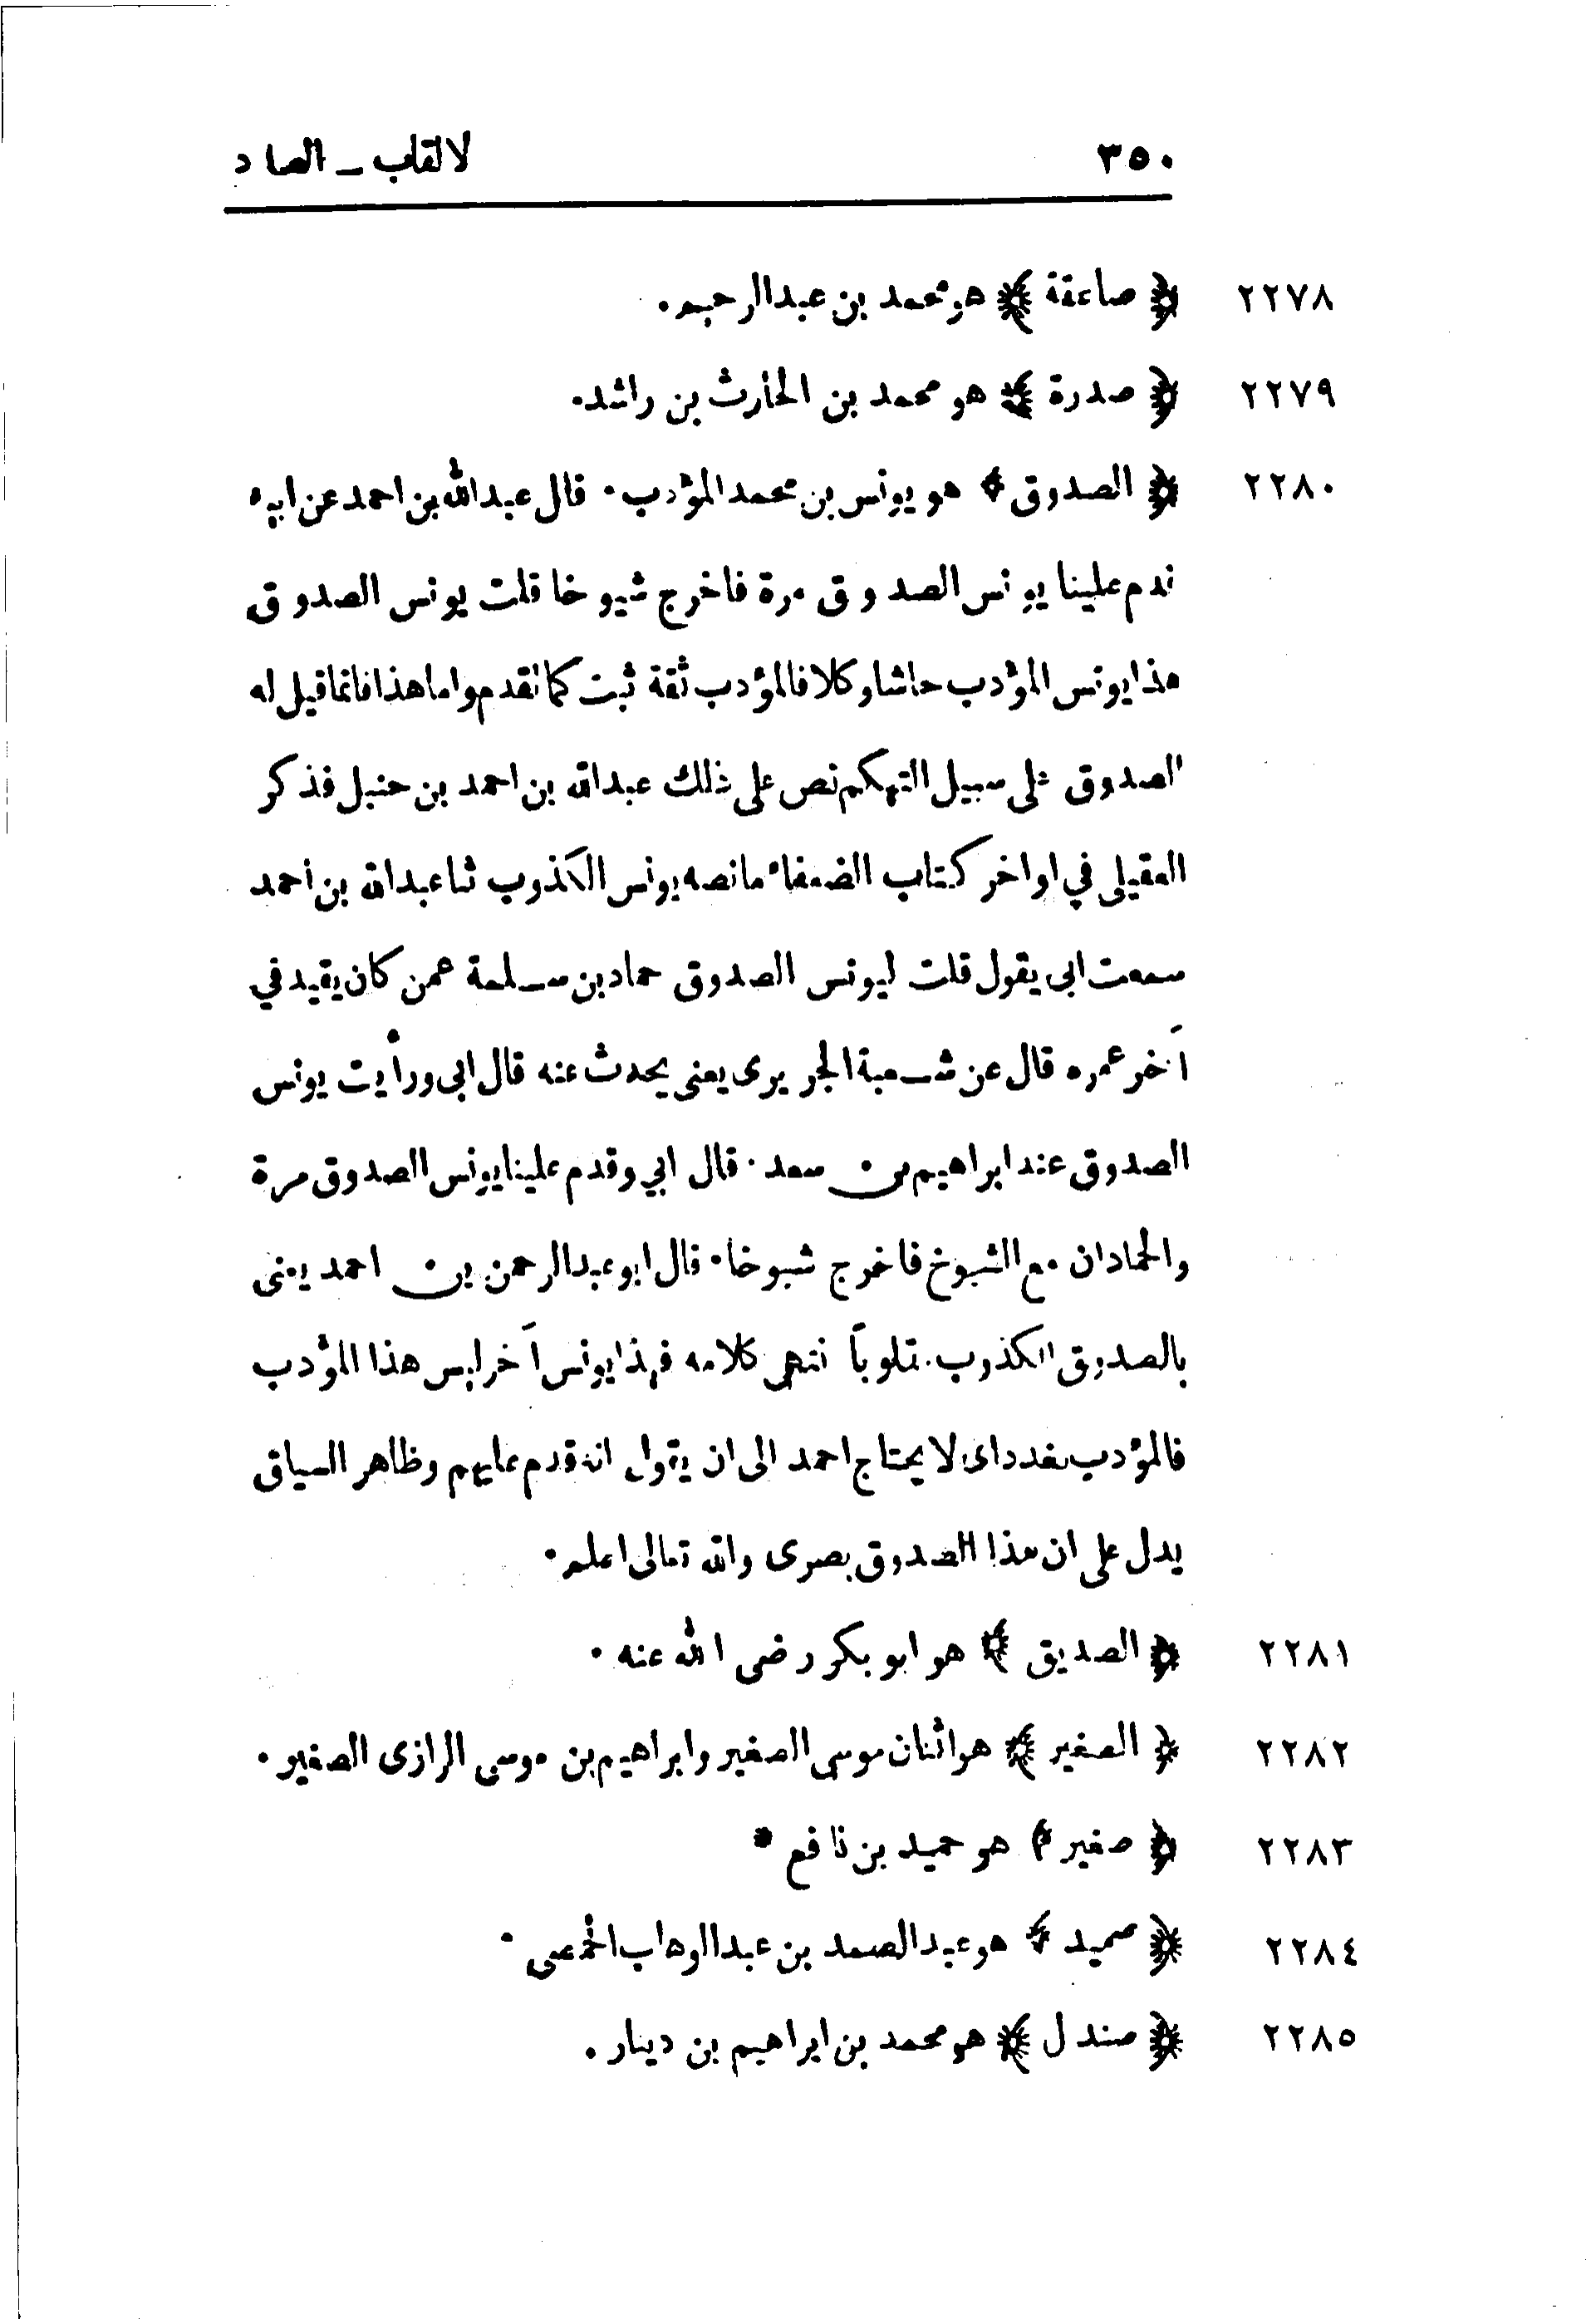 ٣٥٠ لالقاب ـ الصاد
٢٢٧٨ ﴿ صاعقة ﴾ هو محمد بن عبدالرحيم.
٢٢٧٩ ﴿ صدرة ﴾ هو محمد بن الحارث بن راشد.
٢٢٨٠ ﴿ الصدوق ﴾ هو يونس بن محمد المؤدب. قال عبدالله بن احمد عن ابيه
ندم علينا يونس الصدوق مرة فاخرج شيوخا قلت يونس الصدوق
هذا يونس المؤدب حاشا وكلا فالمؤدب ثقة ثبت كما تقدم واما هذا فانما قيل له
الصدوق على سبيل التهكم نص على ذلك عبدالله بن احمد بن حنبل فذكر
العقيلى في اواخر كتاب الضعفاء ما نصه يونس الكذوب ثنا عبدالله بن احمد
سمعت ابى يقول قلت ليونس الصدوق حماد بن سلمة عمن كان يقيد في
آخر عمره قال عن شعبة الجريرى يعنى يحدث عنه قال ابى ورأيت يونس
الصدوق عند ابراهيم بن سعد. قال ابي وقدم علينا يونس الصدوق مرة
والحمادان مع الشيوخ فاخرج شيوخا. قال ابو عبدالرحمن بن احمد يعنى
بالصدوق الكذوب مقلوباً نتهى كلامه فهذا يونس آخر ليس هذا المؤدب
فالمؤدب بغدداى لا يحتاج احمد الى ان يقول انه قدم عليهم وظاهر السياق
يدل على ان هذا الصدوق بصرى والله تعالى اعلم.
٢٢٨١ ﴿ الصديق ﴾ هو ابو بكر رضى الله عنه.
٢٢٨٢ ﴿ الصغير ﴾ هو اثنان موسى الصغير وابراهيم بن موسى الرازى الصغير.
٢٢٨٣ ﴿ صغير ﴾ هو حميد بن نافع *
٢٢٨٤ ﴿ صميد ﴾ هو عبد الصمد بن عبد الوهاب الحمصى.
٢٢٨٥ ﴿ صندل ﴾ هو محمد بن ابراهيم بن دينار.